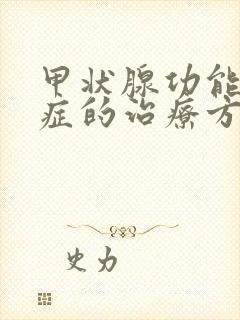 甲状腺功能
症的治疗方
史力